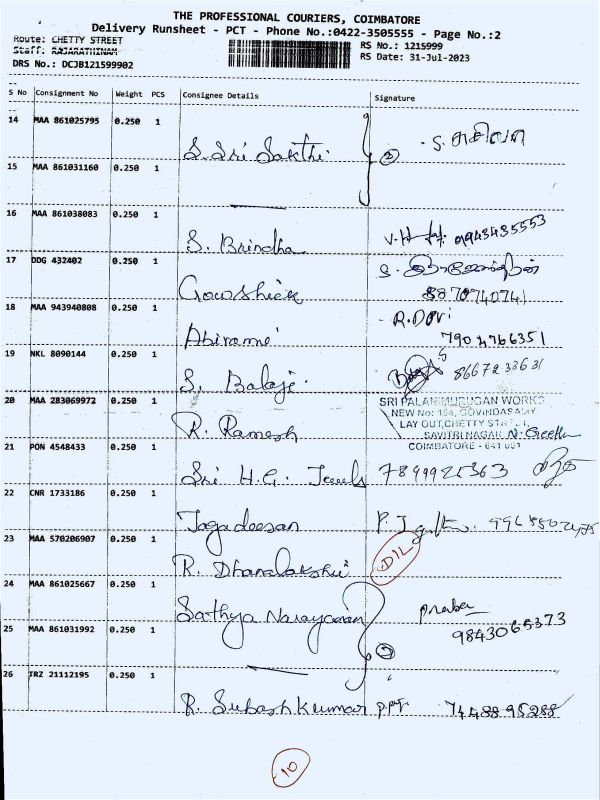 THE PROFESSIONAL COURIERS, COIMBATORE
Delivery Runsheet - PCT - Phone No.:0422-3505555 - Page No.:2
Route: CHETTY STREET
Staff: RAJARATHINAM
DRS No.: DCJB121599902
RS No.: 1215999
RS Date: 31-Jul-2023
S No Consignment No Weight PCS Consignee Details Signature
14 MAA 861025795 0.250 1 S. Sri Sakthi 2
15 MAA 861031160 0.250 1
16 MAA 861038083 0.250 1 S. Brindha 9943435553
17 DDG 432402 0.250 1 Gowshick 8870740741
18 MAA 943940808 0.250 1 Abirami R. Devi 7904766351
19 NKL 8090144 0.250 1 S. Balaji 8667233631
20 MAA 283069972 0.250 1 R. Ramesh
SRI PALANIMURUGAN WORKS
NEW No: 154, GOVINDASAMY
LAY OUT, CHETTY STREET,
SAVITRI NAGAR N. Geetha
COIMBATORE - 641 001
21 PON 4548433 0.250 1 Sri H.G. Jewels 7899925363
22 CNR 1733186 0.250 1 Jagadeesan
23 MAA 570206907 0.250 1 R. Dhanalakshmi D/L
24 MAA 861025667 0.250 1 Sathya Narayanan praba 9843065373
25 MAA 861031992 0.250 1 2
26 TRZ 21112195 0.250 1 R. Subash Kumar 7448895288
10